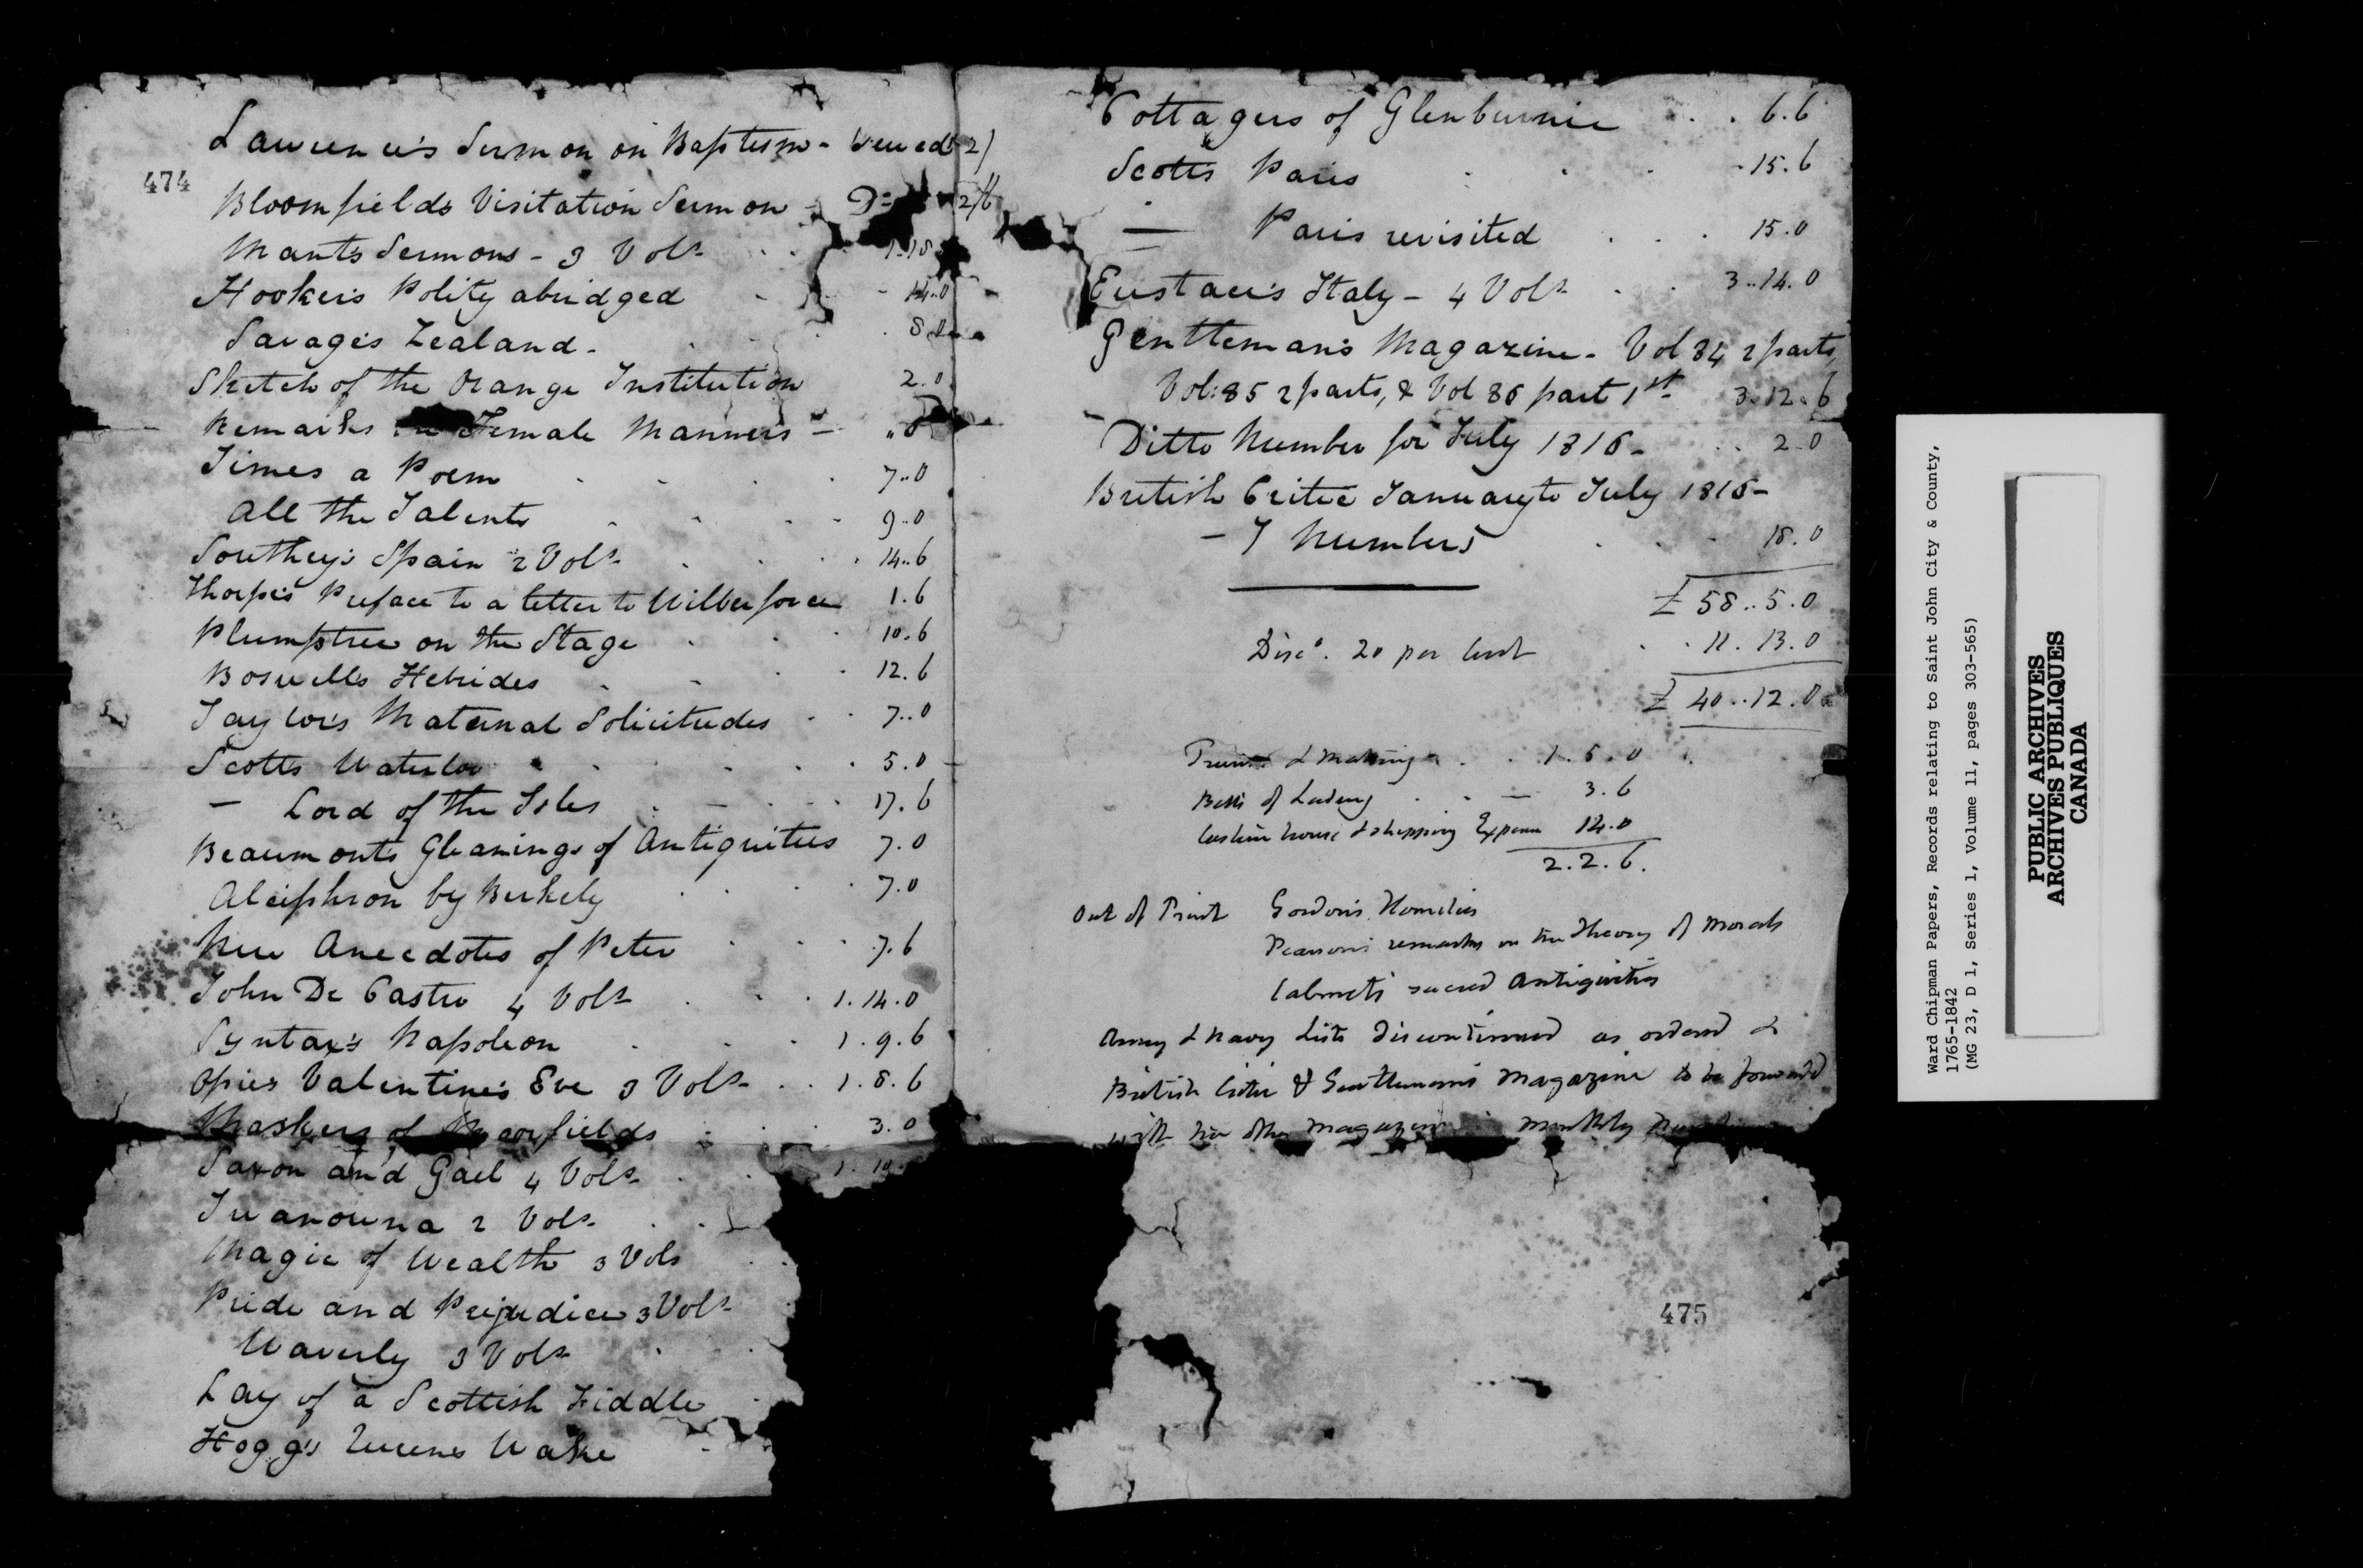 474
Lawrence's Sermon on Baptism - sewed 2/
Bloomfields Visitation Sermon - Do 2/6
Mants Sermons - 3 Vols 1.18
Hooker's Polity abridged 14..0
Savage's Zealand - 8.0
Sketch of the Orange Institution 2.0
Remarks Female Manners -
Times a Poem 7..0
All the Talents 9..0
Southey's Spain 2 Vols 14..6
Thorpe's Preface to a letter to Wilberforce 1.6
Plumptree on the Stage 10.6
Boswells Hebrides 12.6
Taylor's Maternal Solicitudes 7..0
Scotts Waterloo 5.0
— Lord of the Isles 17.6
Beaumonts Gleanings of Antiquities 7.0
Alciphron by Berkely 7.0
New Anecdotes of Peter 7.6
John De Castro 4 Vols 1.14.0
Syntax's Napoleon 1.9.6
Opies Valentine's Eve 3 Vols 1.8.6
Maskers of Moorfields 3.0
Saxon and Gael 4 Vols 1.10
Iwanowna 2 Vols
Magic of Wealth 3 Vols
Pride and Prejudice 3 Vols
Waverly 3 Vols
Lay of a Scottish Fiddle
Hogg's Queens Wake
Cottagers of Glenburnie 6.6
Scotts Paris 15.6
— Paris revisited 15.0
Eustace's Italy - 4 Vols 3..14.0
Gentleman's Magazine - Vol 84 2 parts,
Vol: 85 2 parts, & Vol 86 part 1st 3.12.6
Ditto Number for July 1816 - 2.0
British Critic January to July 1816 -
- 7 Numbers 18.0
£ 58..5.0
Disct. 20 per Cent 11.13.0
£ 40..12.0
Trunk & Matting 1.5.0
Bills of Lading 3.6
Custom house & shipping Expence 14.0
2.2.6.
Out of Print Gordon's Homilies
Pearson's remarks on the Theory of Morals
Calmets sacred Antiquities
Army & Navy Lists discontinued as ordered &
British Critic & Gentleman's Magazine to be forwarded
with the other magazines monthly
475
Ward Chipman Papers, Records relating to Saint John City & County,
1765-1842
(MG 23, D 1, Series 1, Volume 11, pages 303-565)
PUBLIC ARCHIVES
ARCHIVES PUBLIQUES
CANADA